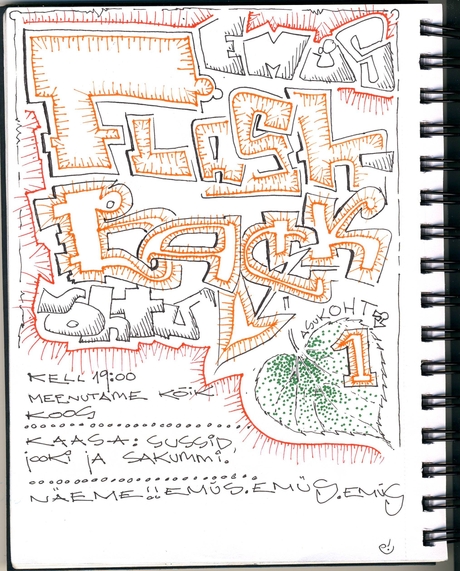 EMÜS
FLASH
BACK
ÕHTU
ASUKOHT
1
KELL 19:00
MEENUTAME KÕIK
KOOS
KAASA: SUSSID,
jooki ja SAKUMMI!
NÄEME!! EMÜS.EMÜS.EMÜS